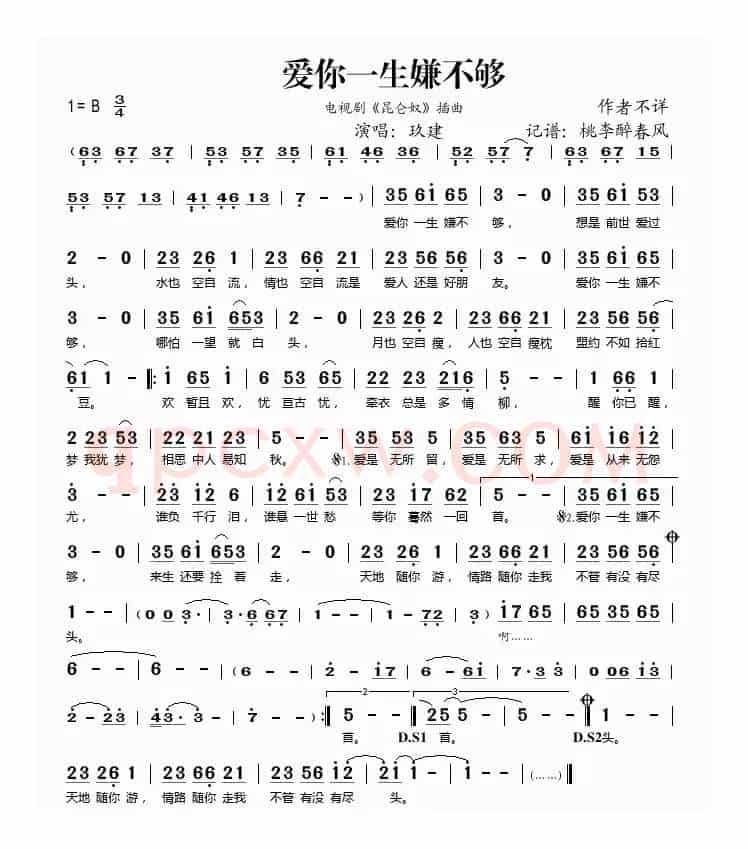 爱你一生嫌不够
1= B 3/4
电视剧《昆仑奴》插曲
作者不详
演唱：玖建
记谱：桃李醉春风
( 63 67 37 | 53 57 35 | 61 46 36 | 52 57 7 | 63 67 15
53 57 13 | 41 46 13 | 7 - - ) | 35 61 65 | 3 - 0 | 35 61 53
爱你 一生 嫌不 够， 想是 前世 爱过
2 - 0 | 23 26 1 | 23 66 21 | 23 56 56 | 3 - 0 | 35 61 65
头， 水也 空自 流，情也 空自 流是 爱人 还是 好朋 友。 爱你 一生 嫌不
3 - 0 | 35 61 653 | 2 - 0 | 23 26 2 | 23 66 21 | 23 56 56
够， 哪怕 一望 就 白 头， 月也 空自 瘦，人也 空自 瘦枕 盟约 不如 拾红
61 1 - ‖: 1 65 | 6 53 5 | 22 23 216 | 5 - - | 1 66
豆。 欢 暂且 欢，忧 亘古 忧，牵衣 总是 多 情 柳， 醒 你已 醒，
2 23 53 | 22 21 23 | 5 - - | 35 35 6 | 35 63 5 | 61 16 12
梦 我犹 梦，相思 中人 易知 秋。 𝄋1.爱是 无所 留，爱是 无所 求，爱是 从来 无怨
6 - 0 | 23 12 6 | 36 61 53 | 23 17 62 | 5 - - | 35 61 65
1
尤， 谁负 千行 泪，谁悬 一世 愁 等你 蓦然 一回 首。 𝄋2.爱你 一生 嫌不
3 - 0 | 35 61 653 | 2 - 0 | 23 26 1 | 23 66 21 | 23 56 56
够， 来生 还要 拴 着 走， 天地 随你 游，情路 随你 走我 不管 有没 有尽
1 - - | ( 0 0 3· | 3· 6 67 | 1 - - | 1 - 72 | 3 - - ) | 17 65
头。 啊……
6 - - | 6 - - | ( 6 - - | 2 - 17 | 6 - 61 | 7· 53 | 6 - 3
2 - 23 | 43 3· | 7 - - ) :‖ 5 - - | 25 5 - | 5 - - ‖ 1 - -
2 3
首。 D.S1 首。 D.S2头。
23 26 1 | 23 66 21 | 23 56 12 | 21 1 - | 1 - - | (……) ‖
天地 随你 游，情路 随你 走我 不管 有没 有尽 头。
qpcxw.COM